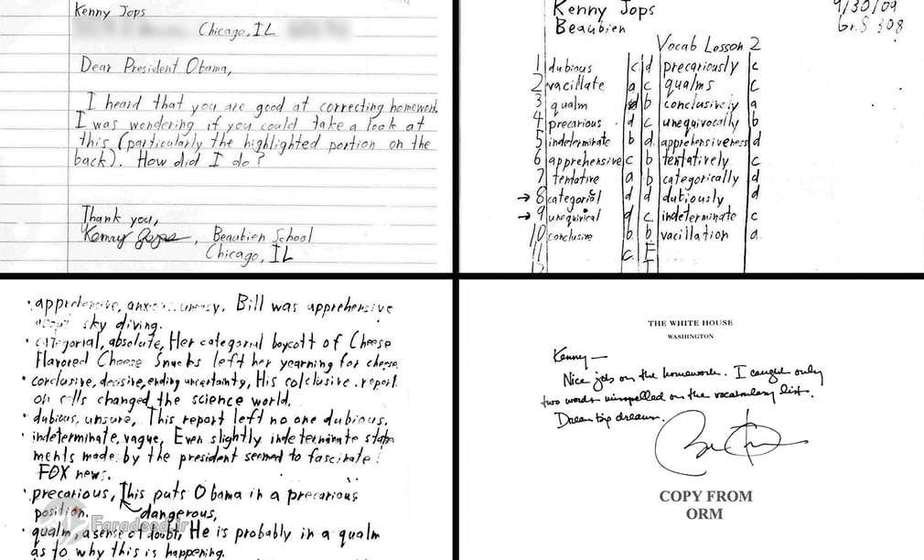 Kenny Jops
Chicago, IL
Dear President Obama,
I heard that you are good at correcting homework.
I was wondering if you could take a look at
this (particularly the highlighted portion on the
back). How did I do?
Thank you,
Kenny Jops, Beaubien School
Chicago, IL
Kenny Jops 9/30/09
Beaubien Gr. 5 308
Vocab Lesson 2
1 dubious c d precariously c
2 vacillate a c qualms c
3 qualm d b conclusively a
4 precarious d c unequivocally b
5 indeterminate b d apprehensiveness d
6 apprehensive c b tentatively c
7 tentative a b categorically d
→ 8 categorial d d dutiously d
→ 9 unequivical d c indeterminate c
10 conclusive b b vacillation a
11 c E
• apprehensive, uneasy. Bill was apprehensive
about sky diving.
• categorial, absolute, Her categorial boycott of Cheese
Flavored Cheese Snacks left her yearning for cheese.
• conclusive, decisive, ending uncertainty, His colclusive report
on cells changed the science world.
• dubious, unsure, This report left no one dubious.
• indeterminate, vague, Even slightly indeterminate state
ments made by the president seemed to fascinate
FOX news.
• precarious, This puts Obama in a precarious
position. dangerous,
• qualm, a sense of doubt, He is probably in a qualm
as to why this is happening.
Faradeed.ir
THE WHITE HOUSE
WASHINGTON
Kenny—
Nice job on the homework. I caught only
two words misspelled on the vocabulary list.
Dream big dreams.
COPY FROM
ORM